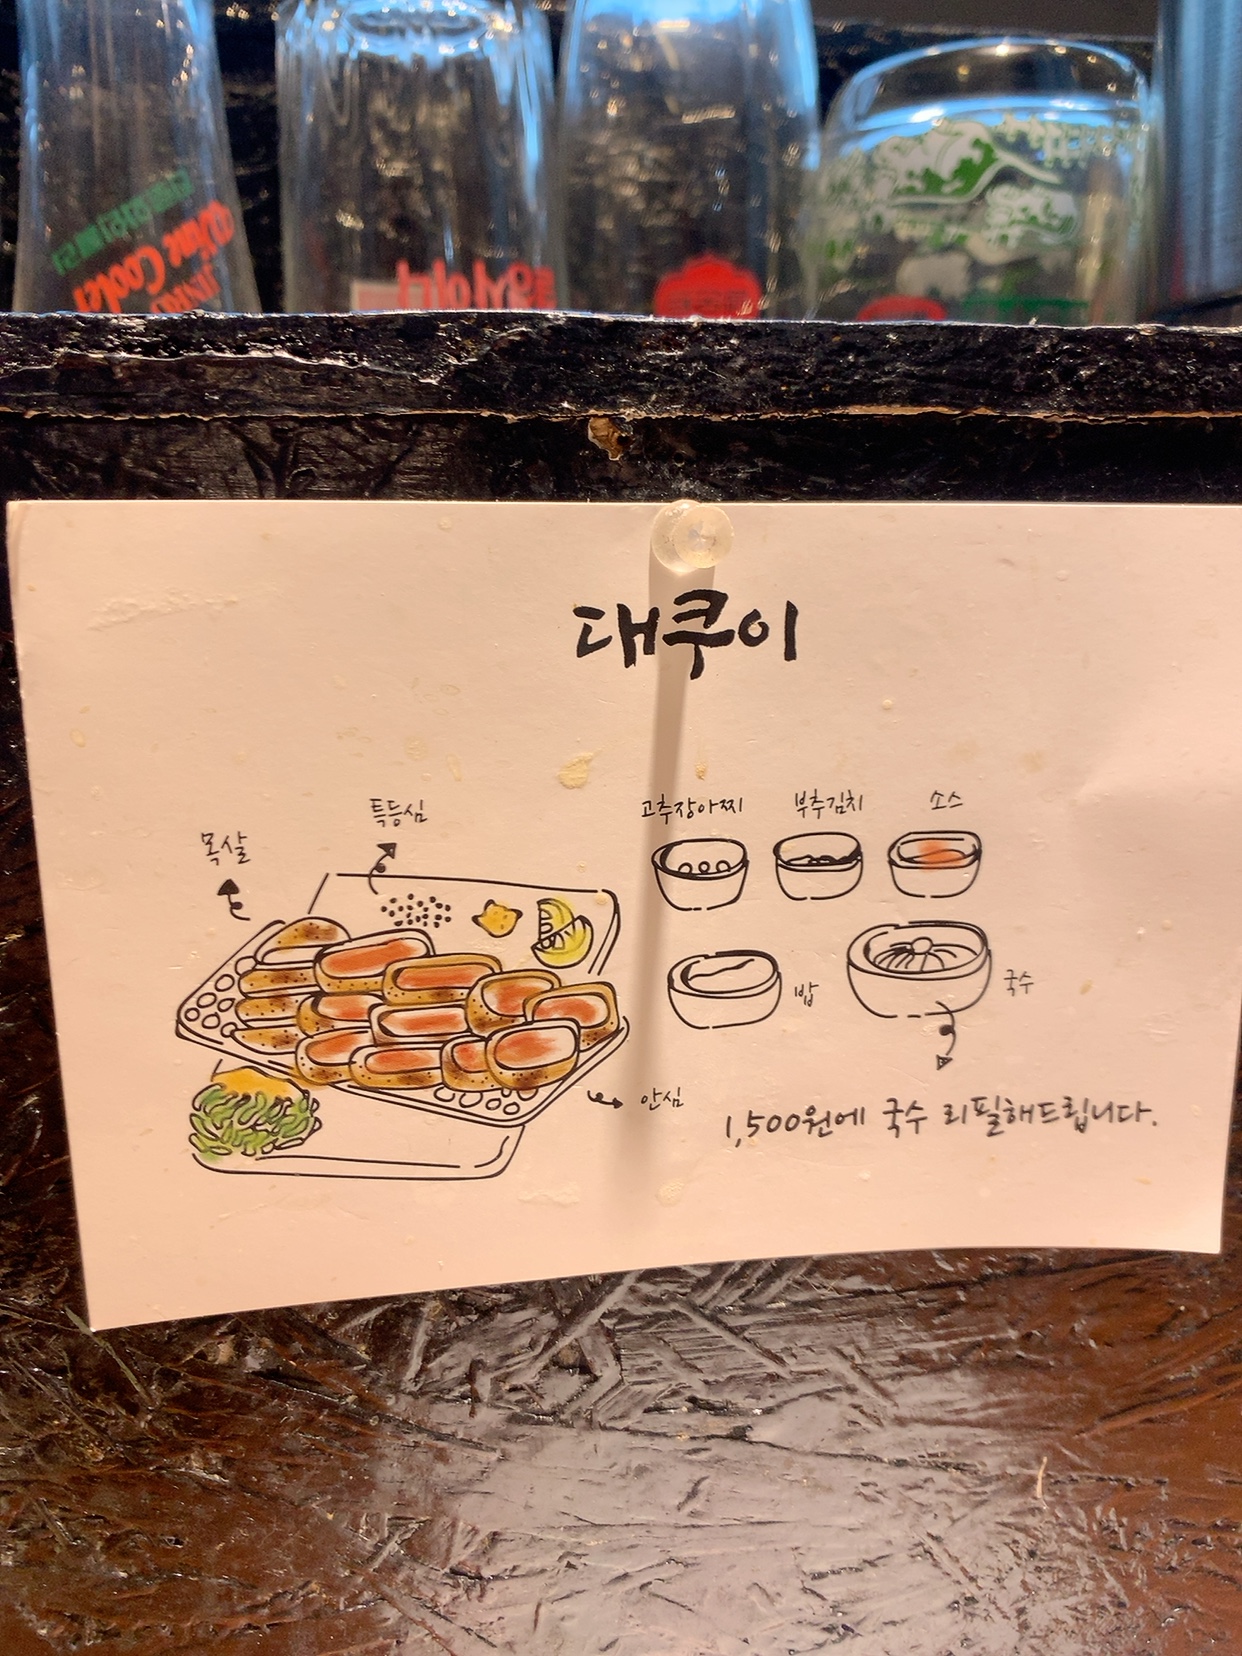 Wine Cooler
JINRO
대쿠이
고추장아찌
부추김치
소스
특등심
목살
밥
국수
안심
1,500원에 국수 리필해드립니다.